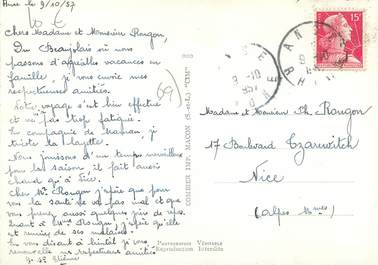 Anse le 9/10/57
Chers Madame et Monsieur Rougon,
Du Beaujolais où nous
passons d'agréables vacances en
famille, je vous envoie mes
respectueuses amitiés.
Le voyage s'est bien effectué
et pas trop fatigué.
En compagnie de maman, je
tricote la layette.
Nous jouissons d'un temps merveilleux
pour la saison, il fait aussi
chaud qu'à Nice.
Cher Mr Rougon j'espère que pour
vous la santé ne va pas mal et que
vous prenez aussi quelques jours de
quant à Mme Rougon j'espère qu'elle
est remise de ses malaises.
En vous disant à bientôt je vous
renouvelle mes respectueuses amitiés
69
COMBIER IMP. MACON (S.-et-L.) "CIM"
Photographie Véritable
Reproduction Interdite
15F
9-10
Madame et Monsieur Ph. Rougon
17 Boulevard Tzarewitch
Nice
(Alpes Mmes)